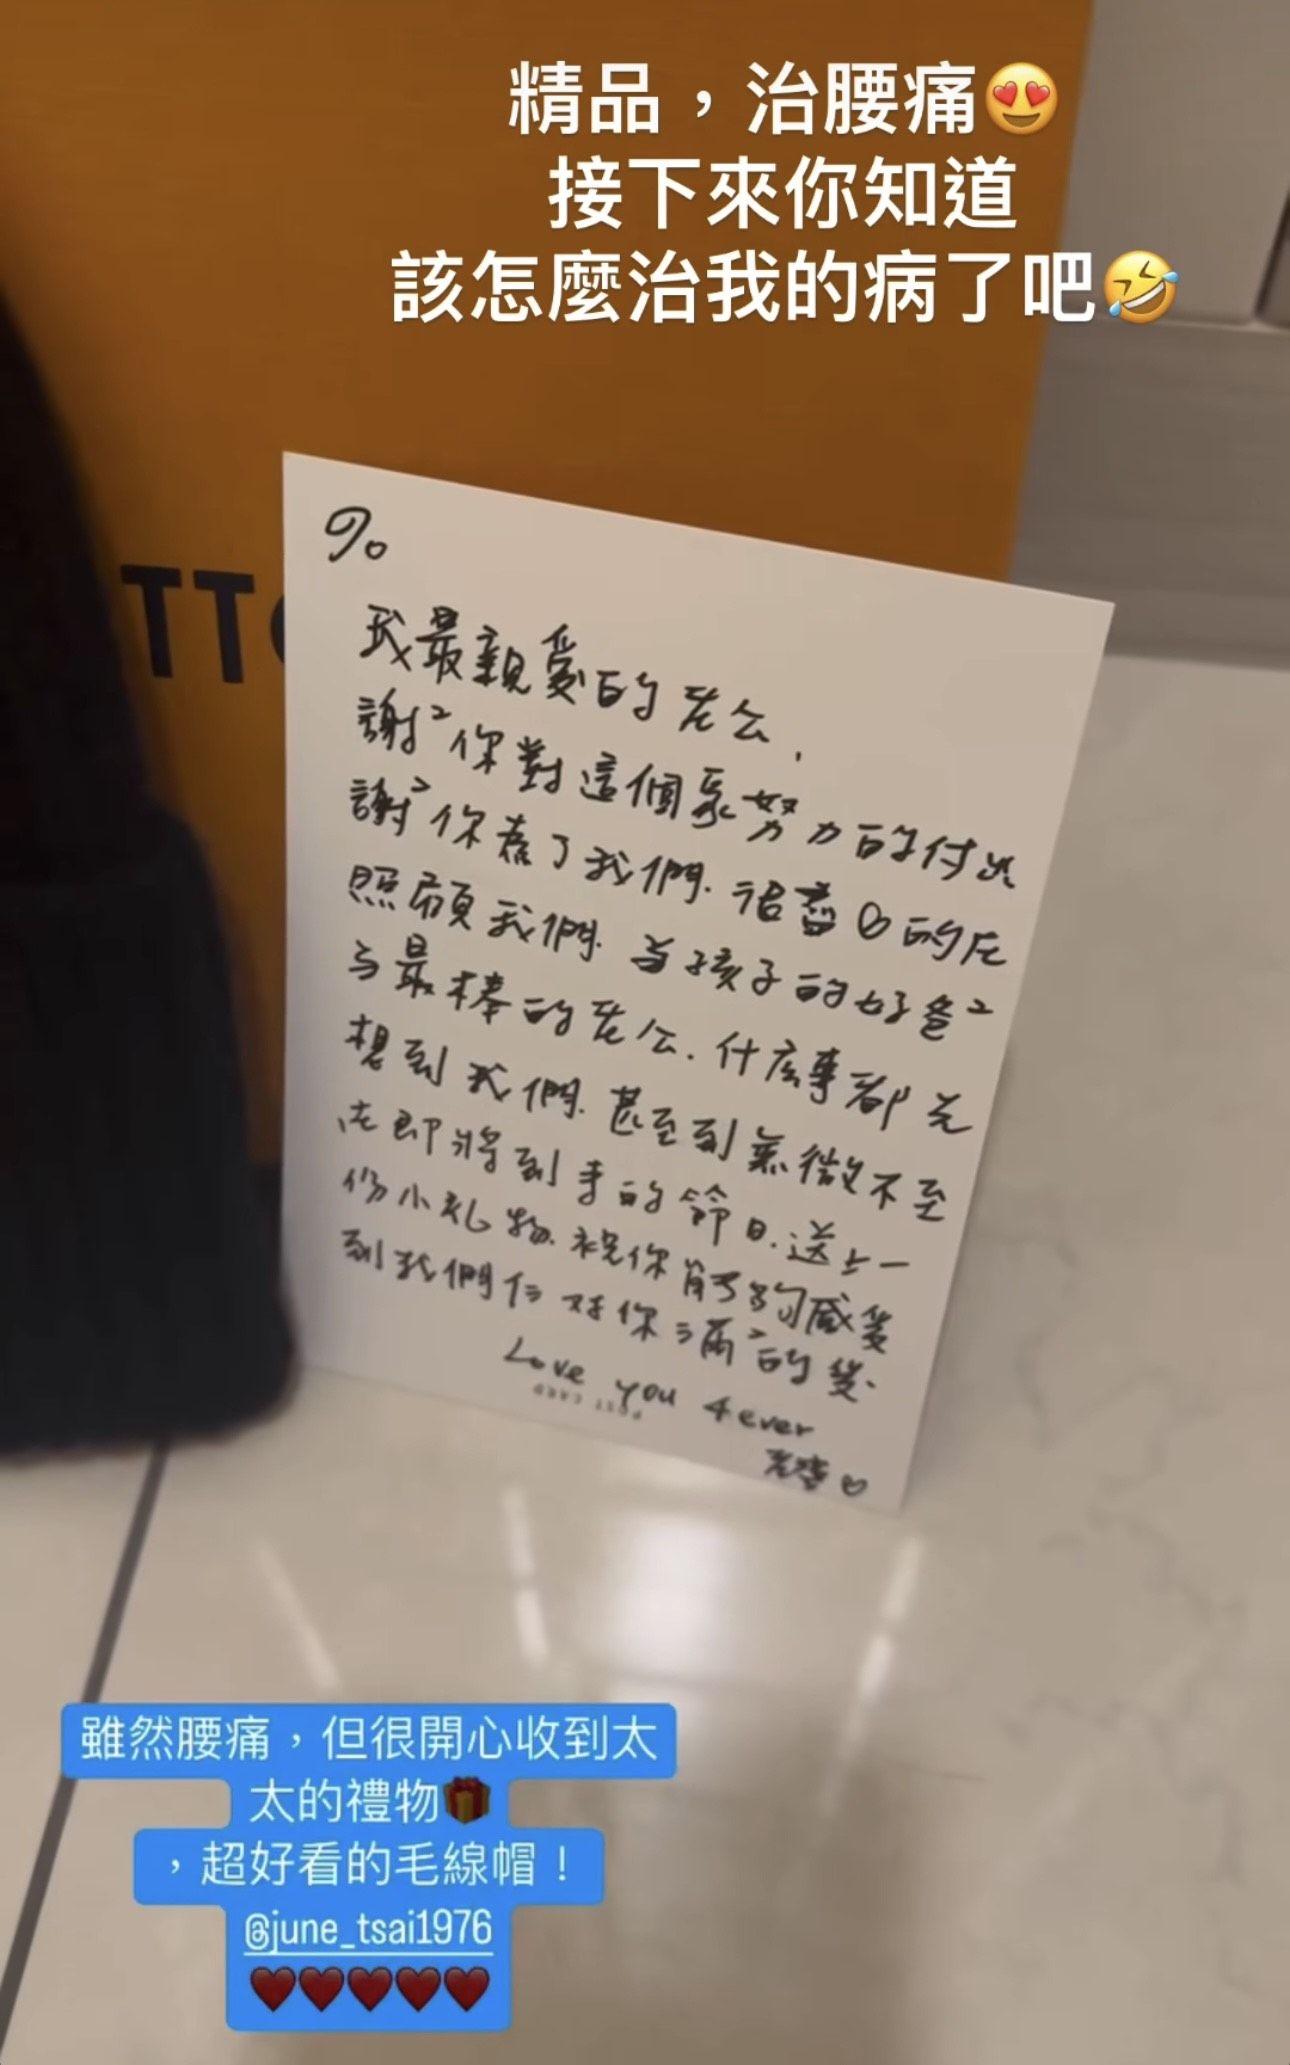 精品，治腰痛😍
接下來你知道
該怎麼治我的病了吧🤣
TT
To
我最親愛的老公,
謝²你對這個家努力的付出
謝²你為了我們. 心的在
照顧我們. 當孩子的好爸²
与最棒的老公. 什広事都先
想到我們. 甚至到無微不至
在即將到來的 日. 送上一
份小礼物. 祝你能夠感受
到我們仨对你滿滿²的愛.
Love you 4ever
POST CARD
老婆♡
雖然腰痛，但很開心收到太
太的禮物🎁
，超好看的毛線帽！
@june_tsai1976
❤️❤️❤️❤️❤️